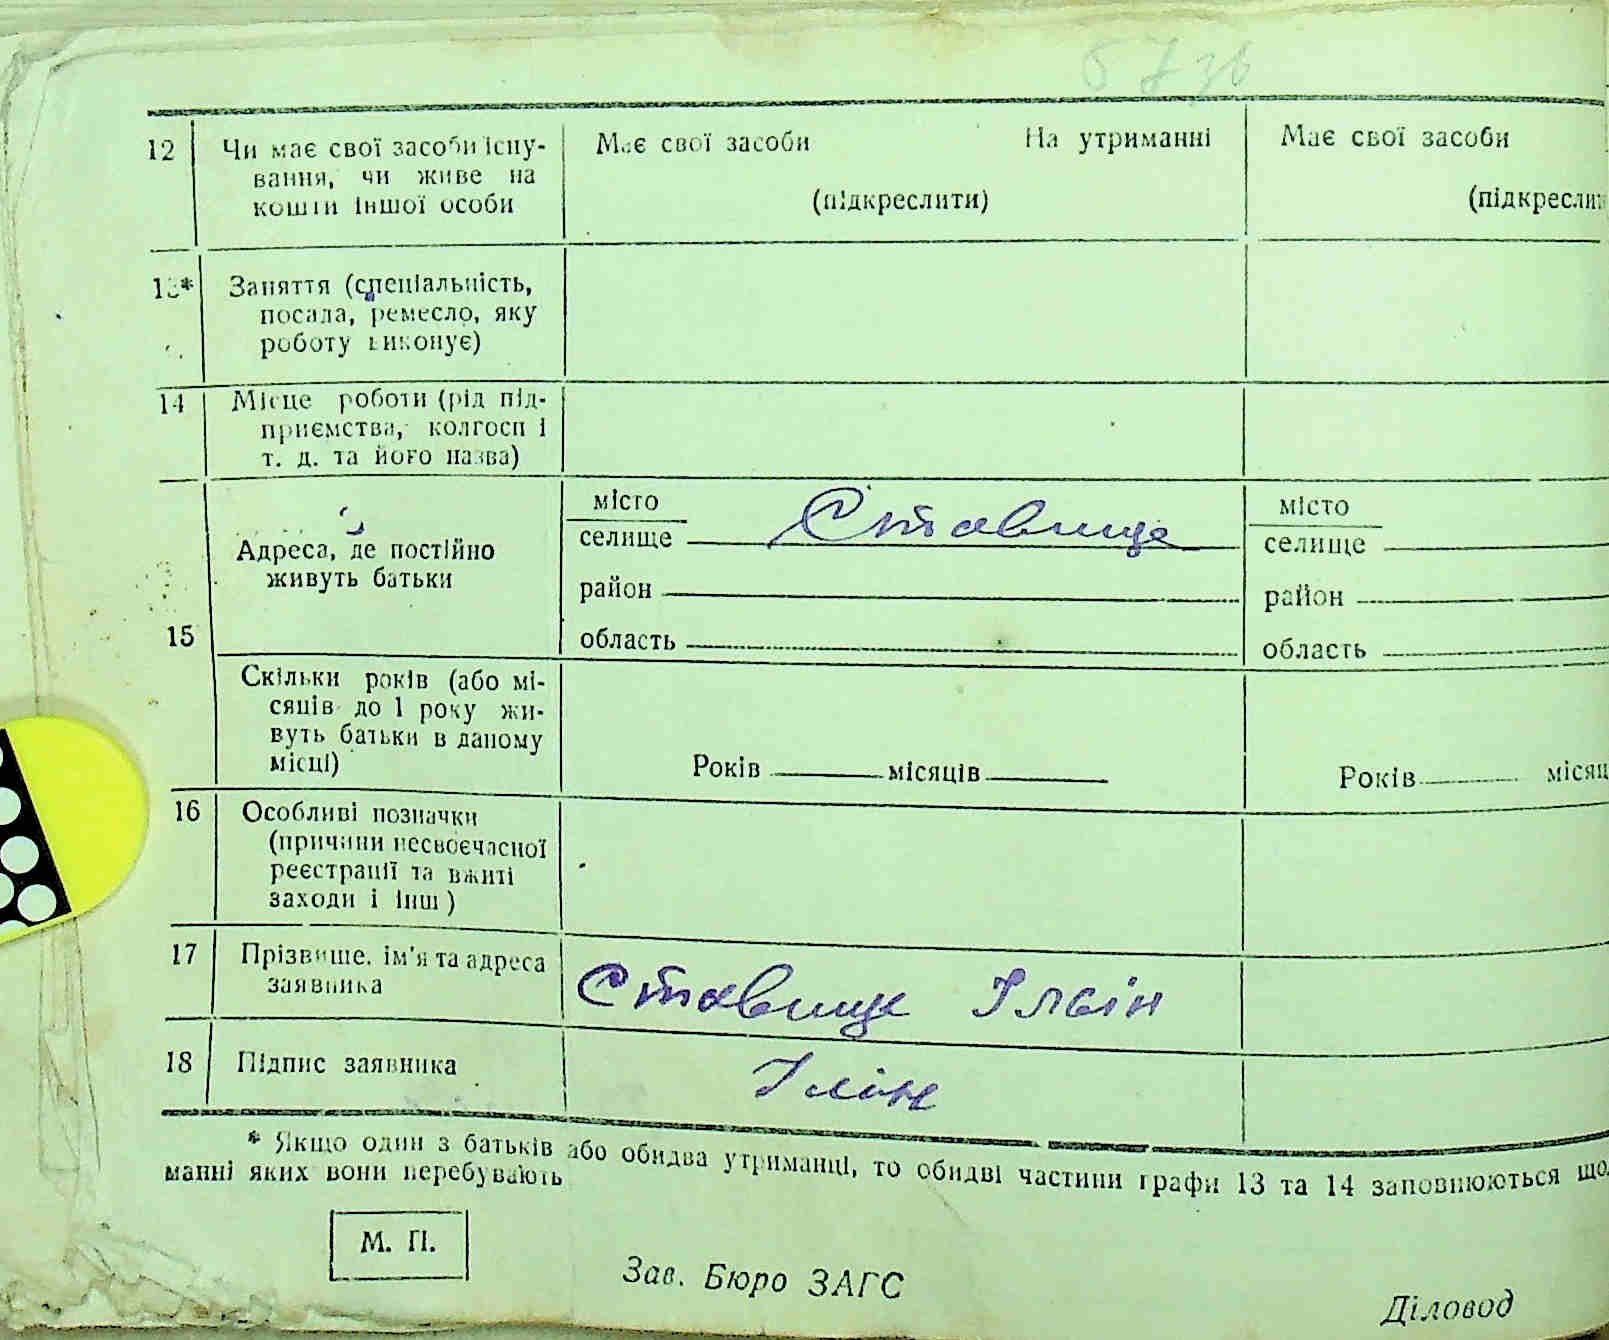 12 Чи має свої засоби існу-
вання, чи живе на
кошти іншої особи
Має свої засоби На утриманні
(підкреслити)
Має свої засоби
(підкресли
13* Заняття (спеціальність,
посада, ремесло, яку
роботу виконує)
14 Місце роботи (рід під-
приємства, колгосп і
т. д. та його назва)
15
Адреса, де постійно
живуть батьки
місто
селище Ставище
район
область
місто
селище
район
область
Скільки років (або мі-
сяців до 1 року жи-
вуть батьки в даному
місці)
Років місяців
Років місяц
16 Особливі позначки
(причини несвоєчасної
реєстрації та вжиті
заходи і інш)
17 Прізвище. ім'я та адреса
заявника
Ставище Ільін
18 Підпис заявника
Ілін
* Якщо один з батьків або обидва утриманці, то обидві частини графи 13 та 14 заповнюються що
манні яких вони перебувають
М. П.
Зав. Бюро ЗАГС
Діловод